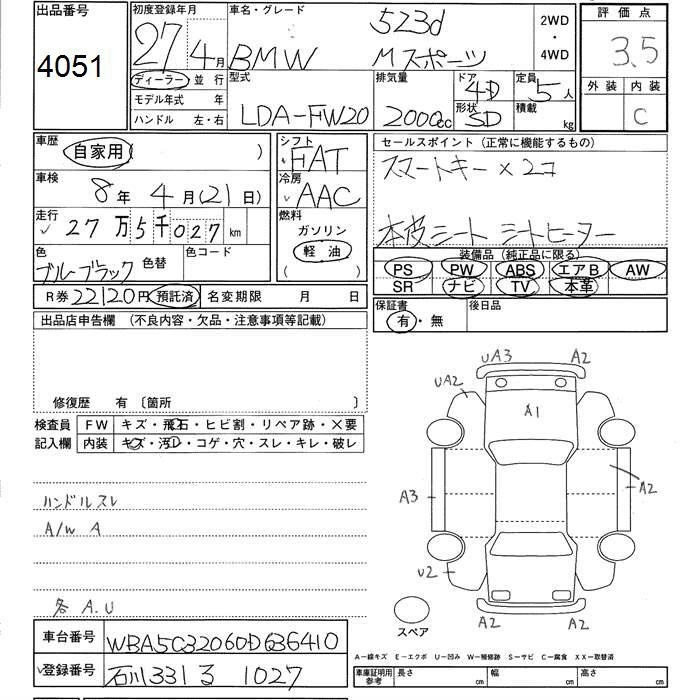 出品番号
4051
初度登録年月
27年 4月
ディーラー 並 行
モデル年式 年
ハンドル 左・右
車名・グレード
523d
BMW Mスポーツ
2WD
・
4WD
型式
LDA-FW20
排気量
2000cc
ドア
4D
形状
SD
定員
5人
積載
kg
評 価 点
3.5
外 装 内 装
C
車歴
自家用 ( )
車検
8年 4月(21日)
走行
27万5千027km
色
ブルーブラック
色替
色コード
シフト
FAT
冷房
AAC
燃料
ガソリン
軽 油
( )
セールスポイント (正常に機能するもの)
スマートキー×2コ
本皮シート シートヒーター
装備品 (純正品に限る)
PS PW ABS エアB AW
SR ナビ TV 本革
R券 22120円 預託済 名変期限 月 日
保証書
有・無
後日品
出品店申告欄 (不良内容・欠品・注意事項等記載)
修復歴 有 〔箇所 〕
検査員
記入欄
FW キズ・飛石・ヒビ割・リペア跡・×要
内装 キズ・汚レ・コゲ・穴・スレ・キレ・破レ
ハンドルスレ
A/W A
各 A.U
UA3 A2
UA2
A1
A3
A2
U2
A2 A2
スペア
A-線キズ E-エクボ U-凹み W-補修跡 S-サビ C-腐食 XX-取替済
車台番号 WBA5C32060D636410
登録番号 石川331る 1027
車庫証明用
参考
長さ cm 幅 cm 高さ cm